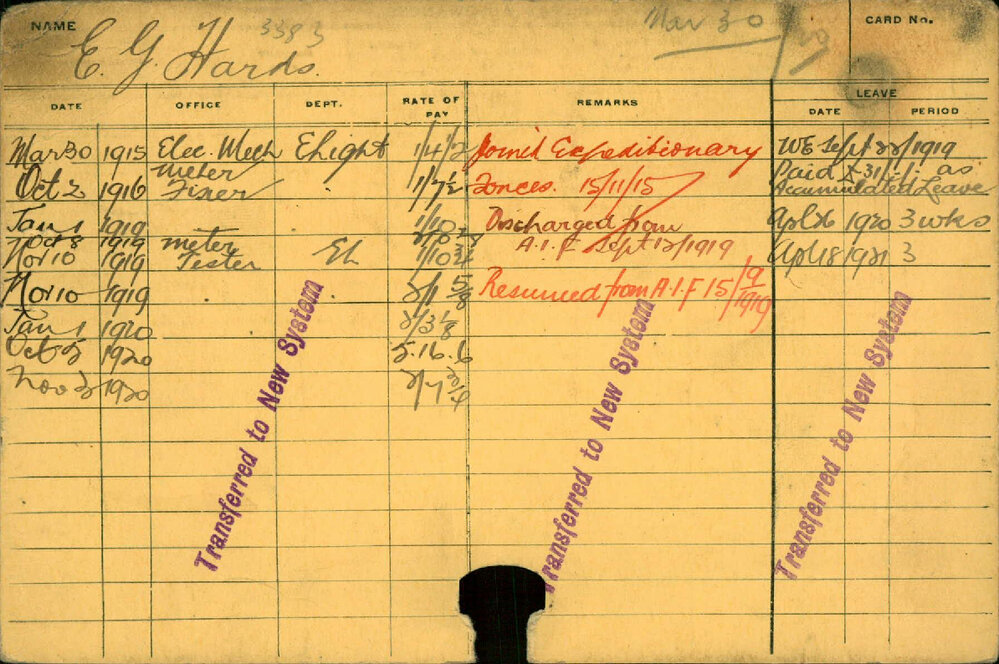 NAME E. G. Hards. 3383 Mar 30 CARD No.
DATE OFFICE DEPT. RATE OF PAY REMARKS LEAVE
DATE PERIOD
Mar 30 1915 Elec. Mech Elight 1/4/2 Joined Expeditionary WE Sept 22/1919
Oct 2 1916 Meter Fixer 1/7½ Forces. 15/11/15 Paid as
Accumulated Leave
Jan 1 1919 1/10 Discharged from Apl 26 1920 3 wks
Oct 8 1919 meter A.I.F Sept 12/1919
Nov 10 1919 Tester EL Apl 18 1921 3
Nov 10 1919 2/1 5/8 Resumed from A.I.F 15/9/1919
Jan 1 1920 2/3⅛
Oct 5 1920 5.16.6
Nov 3 1920
Transferred to New System
Transferred to New System
Transferred to New System